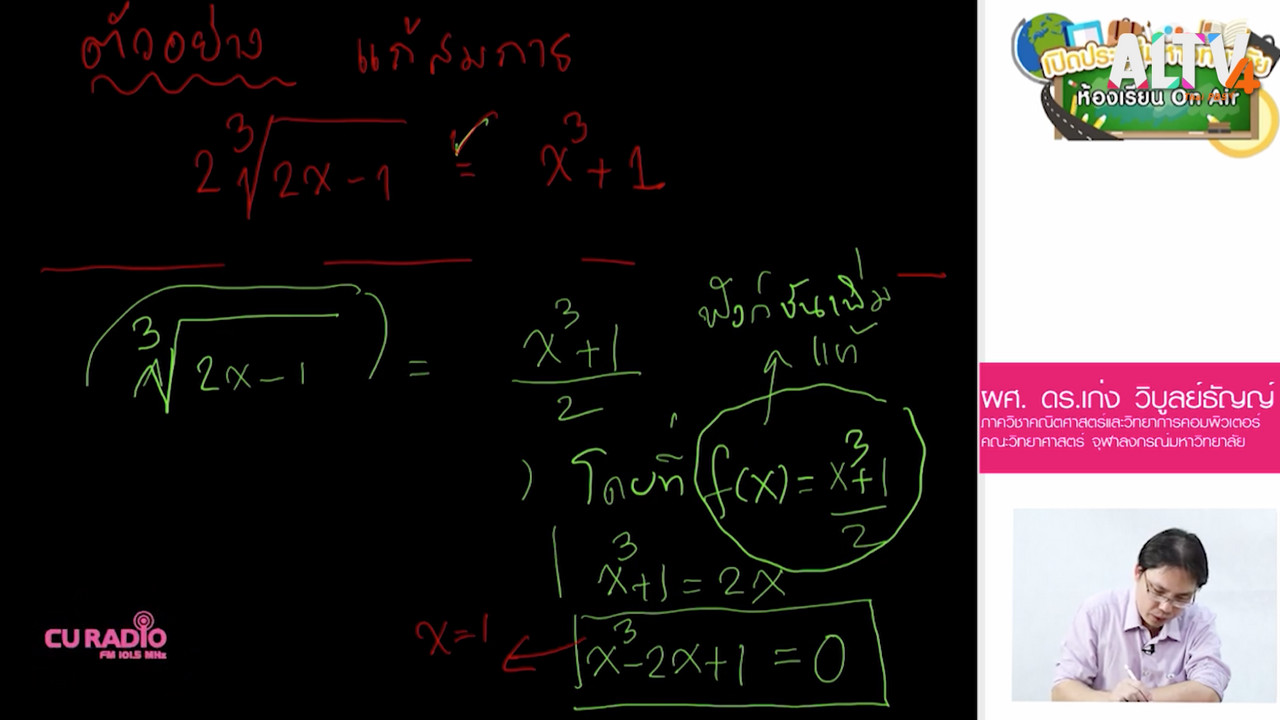 ตัวอย่าง แก้สมการ
2∛(2x-1) = x³+1
∛(2x-1) = (x³+1)/2
ฟังก์ชันเพิ่ม
แท้
) โดยที่ f(x) = (x³+1)/2
x³+1 = 2x
x=1 x³-2x+1 = 0
CU RADIO
FM 101.5 MHz
ALTV4
ห้องเรียน On Air
ผศ. ดร.เก่ง วิบูลย์ธัญญ์
ภาควิชาคณิตศาสตร์และวิทยาการคอมพิวเตอร์
คณะวิทยาศาสตร์ จุฬาลงกรณ์มหาวิทยาลัย